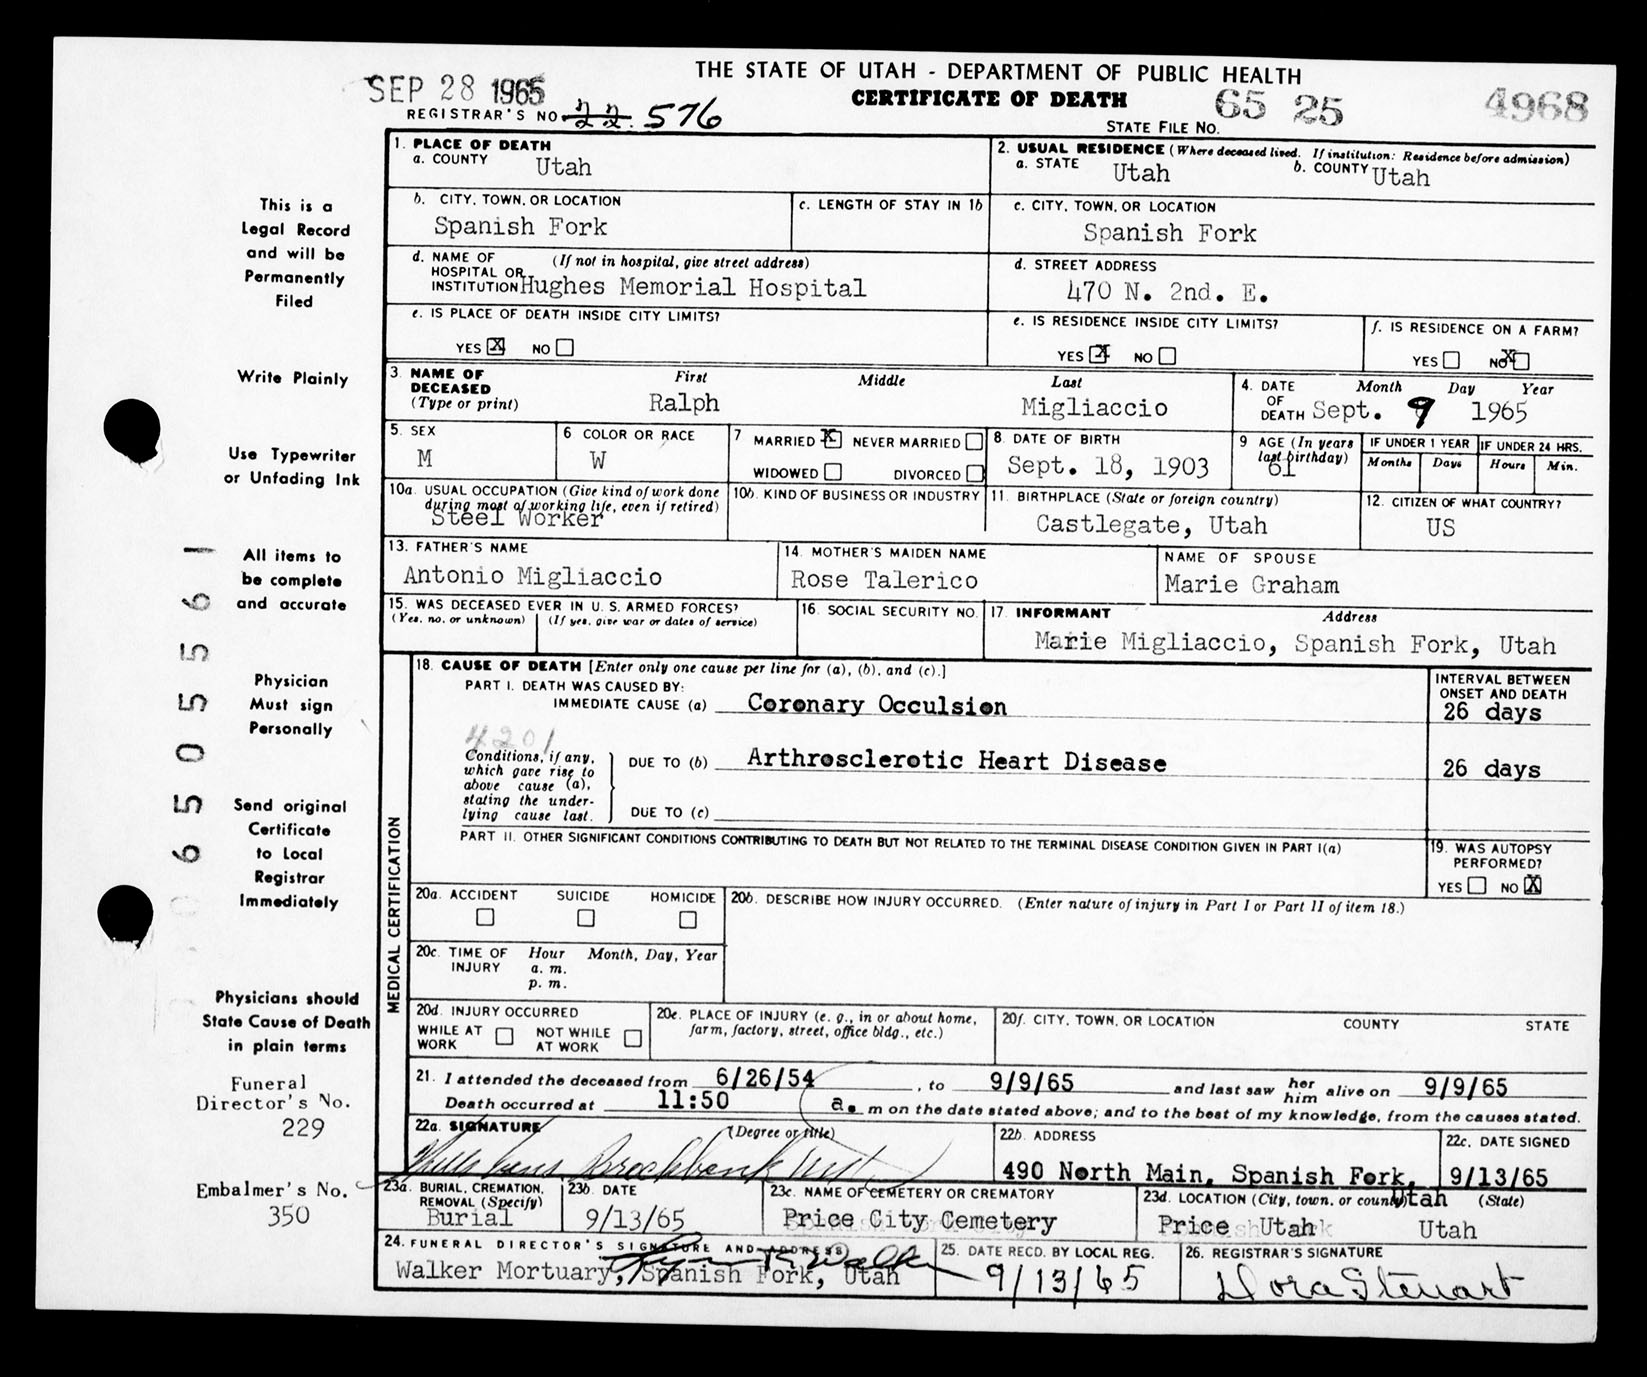 THE STATE OF UTAH - DEPARTMENT OF PUBLIC HEALTH
SEP 28 1965
CERTIFICATE OF DEATH
REGISTRAR'S NO. 22. 576
STATE FILE NO. 65 25 4968
This is a
Legal Record
and will be
Permanently
Filed
Write Plainly
Use Typewriter
or Unfading Ink
All items to
be complete
and accurate
Physician
Must sign
Personally
Send original
Certificate
to Local
Registrar
Immediately
Physicians should
State Cause of Death
in plain terms
Funeral
Director's No.
229
Embalmer's No.
350
65055561
1. PLACE OF DEATH
a. COUNTY Utah
2. USUAL RESIDENCE (Where deceased lived. If institution: Residence before admission)
a. STATE Utah b. COUNTY Utah
b. CITY, TOWN, OR LOCATION
Spanish Fork
c. LENGTH OF STAY IN 1b
c. CITY, TOWN, OR LOCATION
Spanish Fork
d. NAME OF HOSPITAL OR INSTITUTION (If not in hospital, give street address)
Hughes Memorial Hospital
d. STREET ADDRESS
470 N. 2nd. E.
e. IS PLACE OF DEATH INSIDE CITY LIMITS?
YES X NO
e. IS RESIDENCE INSIDE CITY LIMITS?
YES X NO
f. IS RESIDENCE ON A FARM?
YES NO X
3. NAME OF DECEASED (Type or print)
First Middle Last
Ralph Migliaccio
4. DATE OF DEATH Month Day Year
Sept. 9 1965
5. SEX
M
6 COLOR OR RACE
W
7 MARRIED X NEVER MARRIED
WIDOWED DIVORCED
8. DATE OF BIRTH
Sept. 18, 1903
9 AGE (In years last birthday)
61
IF UNDER 1 YEAR
Months Days
IF UNDER 24 HRS.
Hours Min.
10a. USUAL OCCUPATION (Give kind of work done
during most of working life, even if retired)
Steel Worker
10b. KIND OF BUSINESS OR INDUSTRY
11. BIRTHPLACE (State or foreign country)
Castlegate, Utah
12. CITIZEN OF WHAT COUNTRY?
US
13. FATHER'S NAME
Antonio Migliaccio
14. MOTHER'S MAIDEN NAME
Rose Talerico
NAME OF SPOUSE
Marie Graham
15. WAS DECEASED EVER IN U. S. ARMED FORCES?
(Yes, no, or unknown) (If yes, give war or dates of service)
16. SOCIAL SECURITY NO.
17. INFORMANT Address
Marie Migliaccio, Spanish Fork, Utah
MEDICAL CERTIFICATION
18. CAUSE OF DEATH [Enter only one cause per line for (a), (b), and (c).]
PART I. DEATH WAS CAUSED BY:
IMMEDIATE CAUSE (a) Coronary Occulsion
INTERVAL BETWEEN
ONSET AND DEATH
26 days
4201
Conditions, if any,
which gave rise to
above cause (a),
stating the under-
lying cause last.
DUE TO (b) Arthrosclerotic Heart Disease
26 days
DUE TO (c)
PART II. OTHER SIGNIFICANT CONDITIONS CONTRIBUTING TO DEATH BUT NOT RELATED TO THE TERMINAL DISEASE CONDITION GIVEN IN PART I(a)
19. WAS AUTOPSY
PERFORMED?
YES NO X
20a. ACCIDENT SUICIDE HOMICIDE
20b. DESCRIBE HOW INJURY OCCURRED. (Enter nature of injury in Part I or Part II of item 18.)
20c. TIME OF INJURY Hour Month, Day, Year
a. m.
p. m.
20d. INJURY OCCURRED
WHILE AT WORK NOT WHILE AT WORK
20e. PLACE OF INJURY (e. g., in or about home,
farm, factory, street, office bldg., etc.)
20f. CITY, TOWN, OR LOCATION COUNTY STATE
21. I attended the deceased from 6/26/54, to 9/9/65 and last saw her him alive on 9/9/65
Death occurred at 11:50 a. m on the date stated above; and to the best of my knowledge, from the causes stated.
22a. SIGNATURE (Degree or title)
Brockbank
22b. ADDRESS
490 North Main, Spanish Fork, Utah
22c. DATE SIGNED
9/13/65
23a. BURIAL, CREMATION,
REMOVAL (Specify)
Burial
23b. DATE
9/13/65
23c. NAME OF CEMETERY OR CREMATORY
Price City Cemetery
23d. LOCATION (City, town, or county) (State)
Price Utah Utah
24. FUNERAL DIRECTOR'S SIGNATURE AND ADDRESS
Walker
Walker Mortuary, Spanish Fork, Utah
25. DATE RECD. BY LOCAL REG.
9/13/65
26. REGISTRAR'S SIGNATURE
Dora Stewart